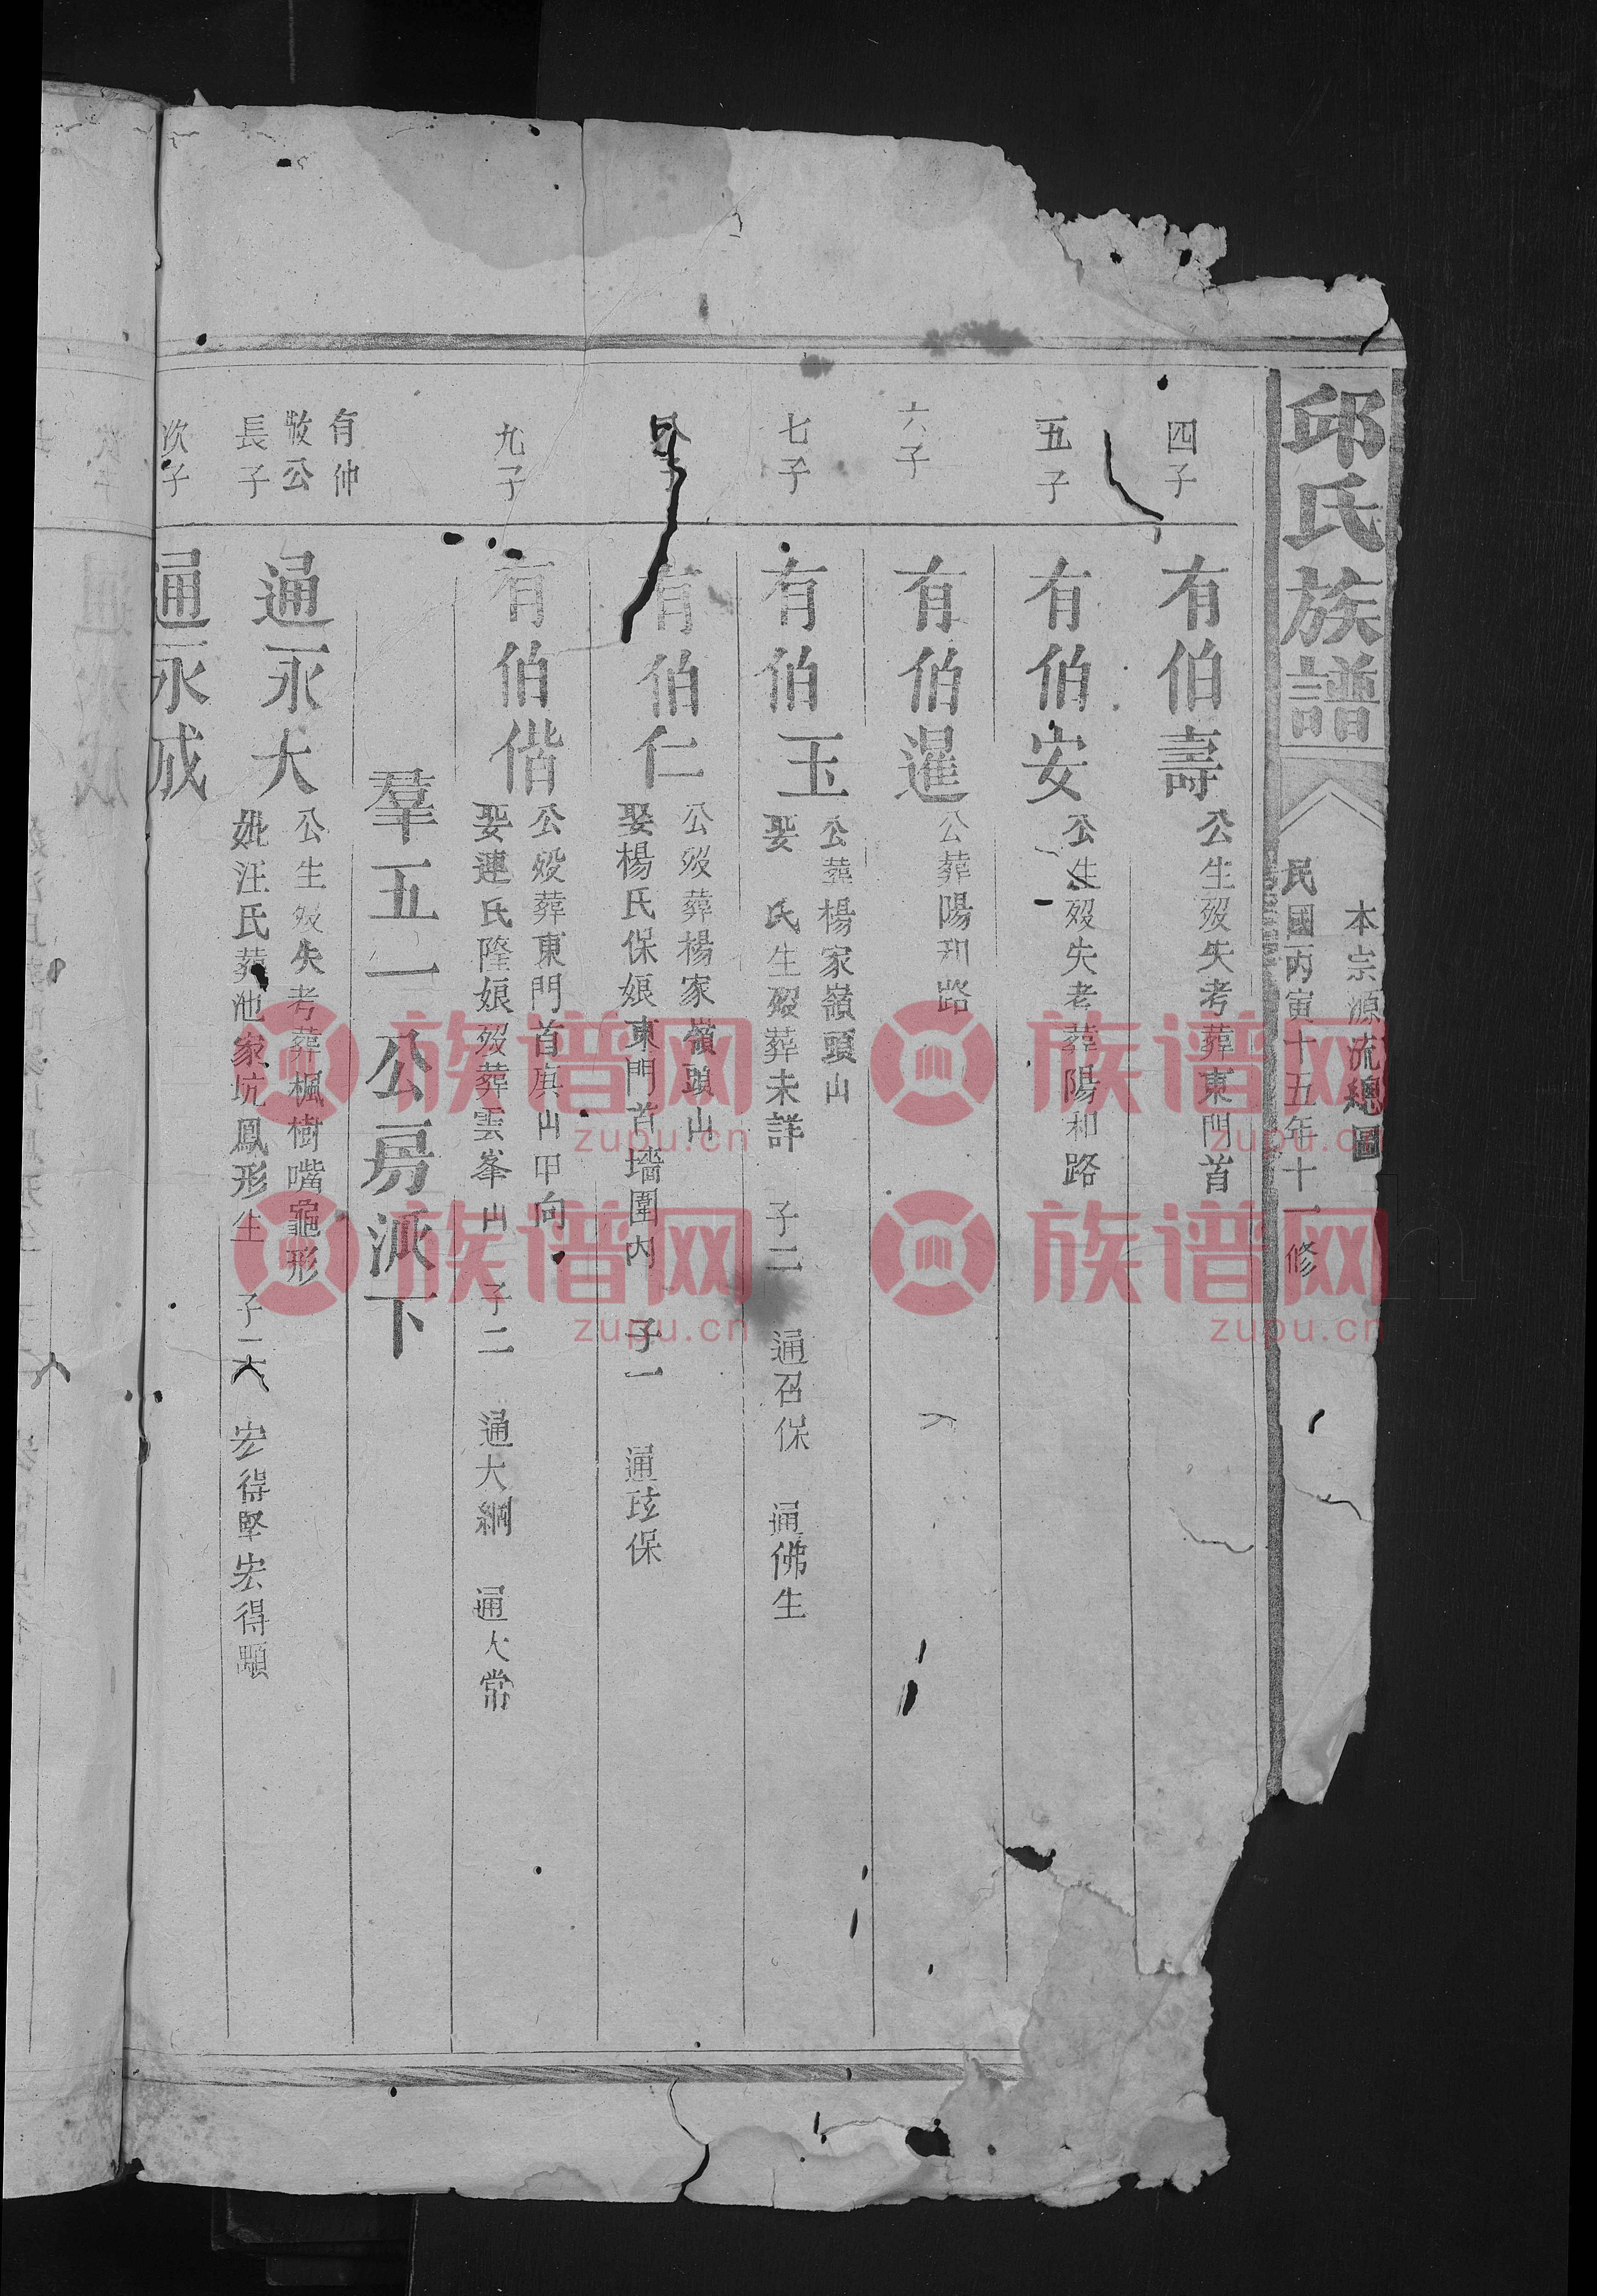 邱氏族譜
本宗源流總圖
民國丙寅十五年十一修
四子
有伯壽
公生歿失考葬東門首
五子
有伯安
公生歿失考葬陽和路
六子
有伯暹
公葬陽和路
七子
有伯玉
公葬楊家嶺頭山
娶 氏生歿葬未詳 子二 通召保 通佛生
有伯仁
公歿葬楊家嶺頭山
娶楊氏保娘東門首墻圍內 子一 通琺保
九子
有伯偕
公歿葬東門首旗山甲向
娶連氏隆娘歿葬雲峯山 子二 通大綱 通大常
羣五一公房派下
有仲
敬公
長子
通永大
公生歿失考葬楓樹嘴龜形
妣汪氏葬池家坑鳳形生 子二 宏得堅宏得顯
次子
通永成
族谱网
zupu.cn
族谱网
zupu.cn
族谱网
zupu.cn
族谱网
zupu.cn